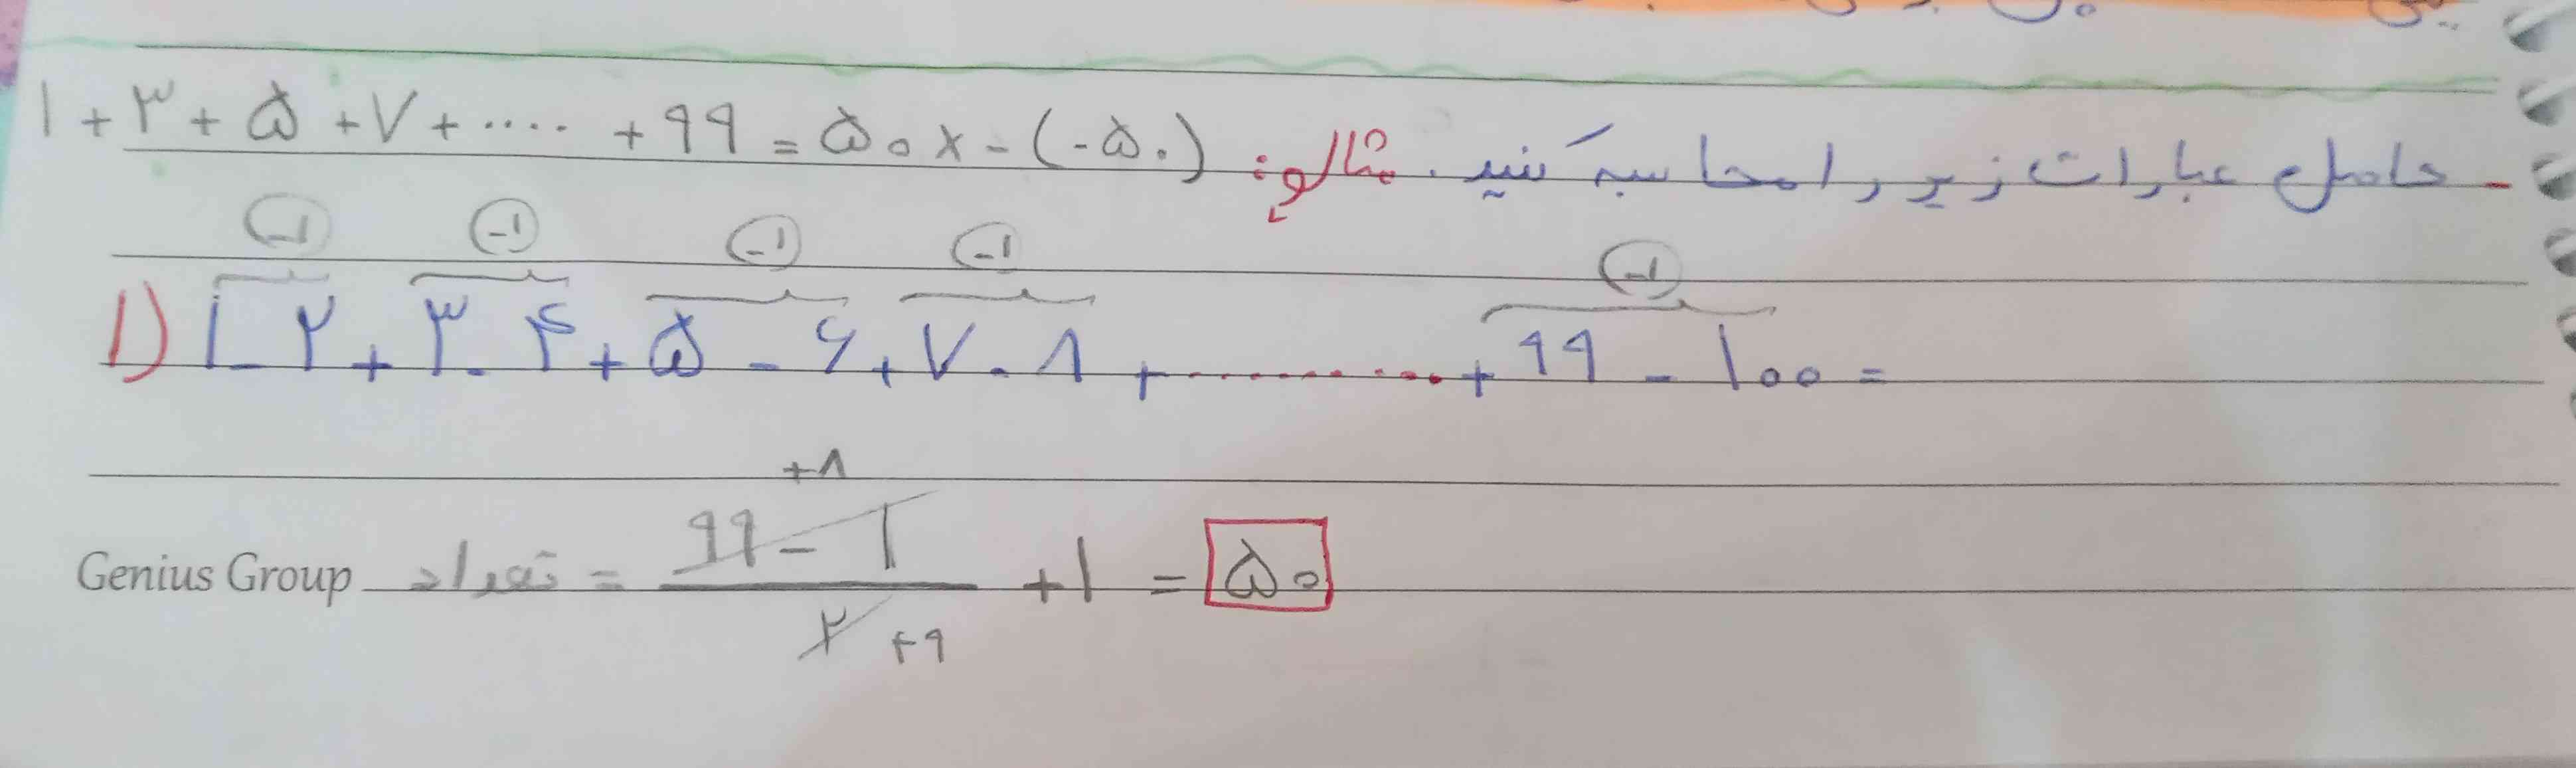 - حاصل عبارات زیر را محاسبه کنید. مثال: ۱ + ۳ + ۵ + ۷ + .... + ۹۹ = ۵۰ × - (-۵۰)
-۱ -۱ -۱ -۱ -۱
۱) ۱ - ۲ + ۳ - ۴ + ۵ - ۶ + ۷ - ۸ + .......... + ۹۹ - ۱۰۰ =
+۸
Genius Group تعداد = ۹۹ - ۱ / ۲ + ۱ = ۵۰
۴۹